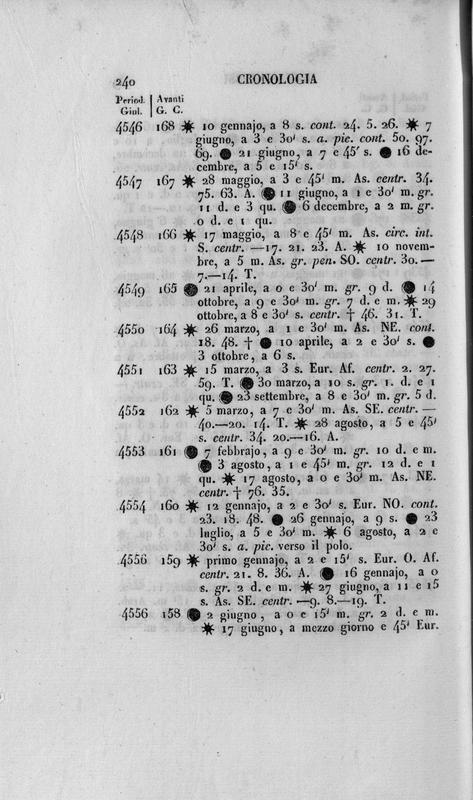 240 CRONOLOGIA
Period. | Avanti
Giul. | G. C.
4546 168 ✷ 10 gennajo, a 8 s. cont. 24. 5. 26. ✷ 7
giugno, a 3 e 30' s. a. pic. cont. 50. 97.
69. ● 21 giugno, a 7 e 45' s. ● 16 de-
cembre, a 5 e 15' s.
4547 167 ✷ 28 maggio, a 3 e 45' m. As. centr. 34.
75. 63. A. ● 11 giugno, a 1 e 30' m. gr.
11 d. e 3 qu. ● 6 decembre, a 2 m. gr.
0 d. e 1 qu.
4548 166 ✷ 17 maggio, a 8 e 45' m. As. circ. int.
S. centr. —17. 21. 23. A. ✷ 10 novem-
bre, a 5 m. As. gr. pen. SO. centr. 30.—
7.—14. T.
4549 165 ● 21 aprile, a 0 e 30' m. gr. 9 d. ● 14
ottobre, a 9 e 30' m. gr. 7 d. e m. ✷ 29
ottobre, a 8 e 30' s. centr. † 46. 31. T.
4550 164 ✷ 26 marzo, a 1 e 30' m. As. NE. cont.
18. 48. † ● 10 aprile, a 2 e 30' s. ●
3 ottobre, a 6 s.
4551 163 ✷ 15 marzo, a 3 s. Eur. Af. centr. 2. 27.
59. T. ● 30 marzo, a 10 s. gr. 1. d. e 1
qu. ● 23 settembre, a 8 e 30' m. gr. 5 d.
4552 162 ✷ 5 marzo, a 7 e 30' m. As. SE. centr. —
40.—20. 14. T. ✷ 28 agosto, a 5 e 45'
s. centr. 34. 20.—16. A.
4553 161 ● 7 febbrajo, a 9 e 30' m. gr. 10 d. e m.
● 3 agosto, a 1 e 45' m. gr. 12 d. e 1
qu. ✷ 17 agosto, a 0 e 30' m. As. NE.
centr. † 76. 35.
4554 160 ✷ 12 gennajo, a 2 e 30' s. Eur. NO. cont.
23. 18. 48. ● 26 gennajo, a 9 s. ● 23
luglio, a 5 e 30' m. ✷ 6 agosto, a 2 e
30' s. a. pic. verso il polo.
4556 159 ✷ primo gennajo, a 2 e 15' s. Eur. O. Af.
centr. 21. 8. 36. A. ● 16 gennajo, a 0
s. gr. 2 d. e m. ✷ 27 giugno, a 11 e 15
s. As. SE. centr. —9. 8.—19. T.
4556 158 ● 2 giugno, a 0 e 15' m. gr. 2 d. e m.
✷ 17 giugno, a mezzo giorno e 45' Eur.